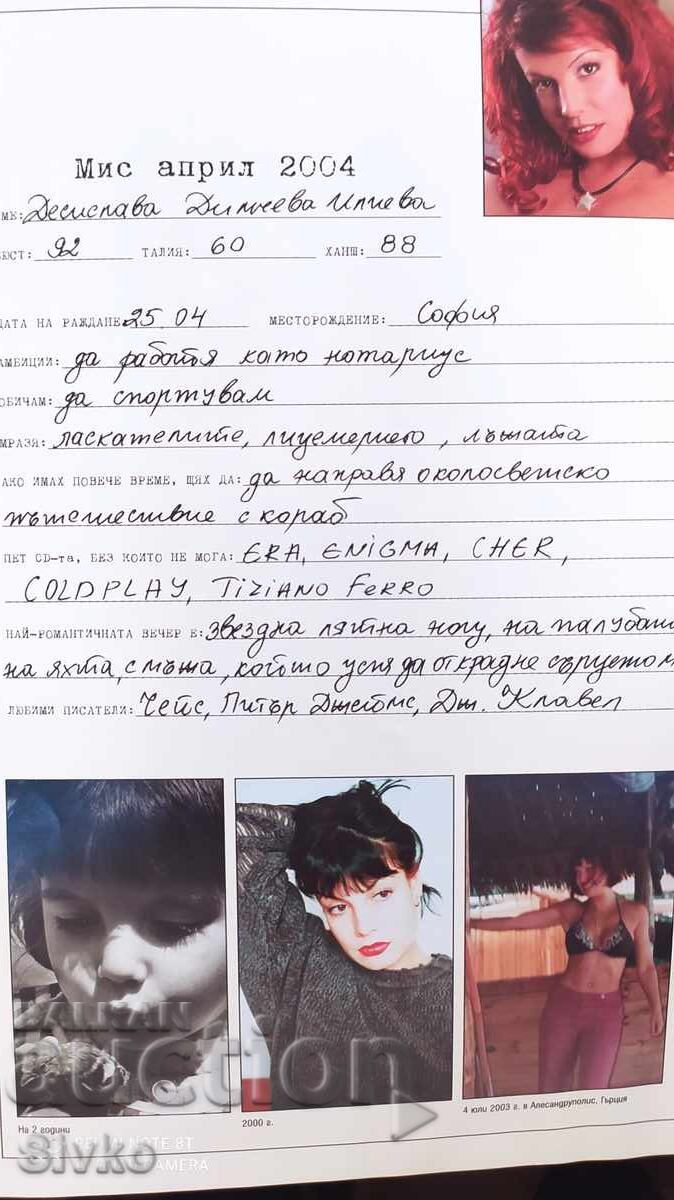 Мис април 2004
МЕ: Десислава Дилчева Илиева
БЮСТ: 92 ТАЛИЯ: 60 ХАНШ: 88
ДАТА НА РАЖДАНЕ 25.04 МЕСТОРОЖДЕНИЕ: София
АМБИЦИИ: да работя като нотариус
ОБИЧАМ: да спортувам
МРАЗЯ: ласкателите, лицемерието, лъжата
АКО ИМАХ ПОВЕЧЕ ВРЕМЕ, ЩЯХ ДА: да направя околосветско
пътешествие с кораб
ПЕТ CD-та, БЕЗ КОИТО НЕ МОГА: ERA, ENIGMA, CHER,
COLDPLAY, TIZIANO FERRO
НАЙ-РОМАНТИЧНАТА ВЕЧЕР Е: звездна лятна нощ, на палубата
на яхта, с мъжа, който успя да открадне сърцето м
ЛЮБИМИ ПИСАТЕЛИ: Чейс, Питър Джеймс, Дж. Клавел
На 2 години
2000 г.
4 юли 2003 г. в Алесандруполис, Гърция
BALKAN
auction
REDMI NOTE 8T
CAMERA
Sivko